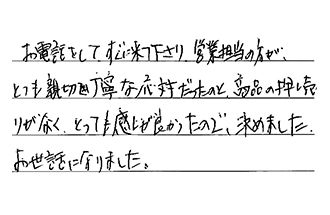 お電話をしてすぐに来て下さり、営業担当の方が、
とても親切丁寧な応対だったのと、商品の押し売
りがなく、とっても感じが良かったので、決めました。
お世話になりました。